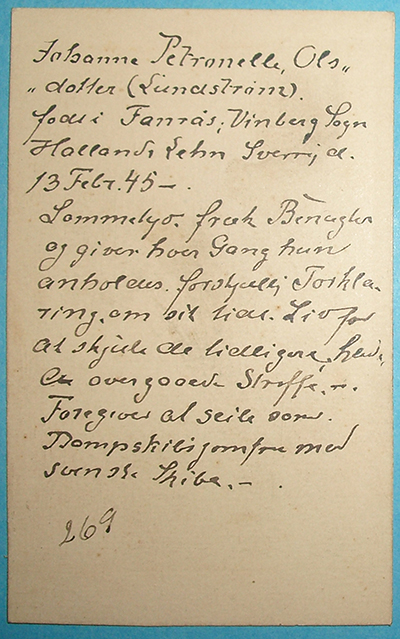 Johanne Petronelle, Ols„
„dotter (Lundstrøm).
født i Fanrås, Vinberg Sogn
Hallands Lehn Sverrig d.
13 Febr. 45 –.
Lommetyv. fræk Benægter
og giver hver Gang hun
anholdes. forskjellig Forkla-
ring, om sit tidl. Liv for
at skjule de tidligere hende
overgaaede Straffe. –.
Foregiver at seile som.
Dampskibsjomfru med
svenske Skibe. – .
269